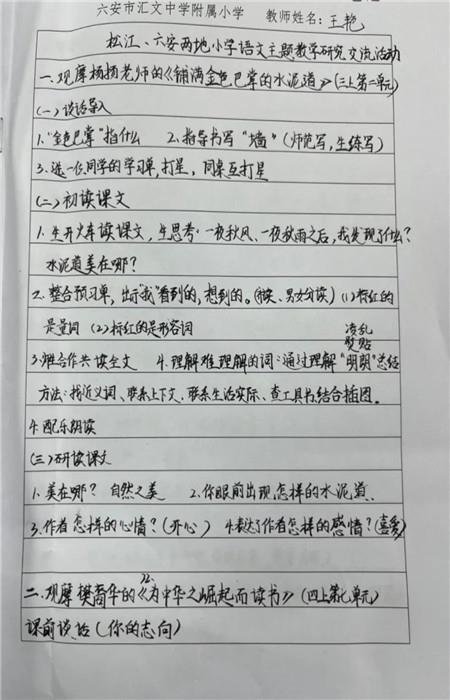 六安市汇文中学附属小学 教师姓名：王艳
松江、六安两地小学语文主题教学研究交流活动
一、观摩杨扬老师的《铺满金色巴掌的水泥道》（三上第二单元）
(一)谈话导入
1."金色巴掌"指什么 2.指导书写"墙"（师范写，生练写）
3.选一位同学的学习单，打星，同桌互打星
(二)初读课文
1.生开火车读课文，生思考：一夜秋风、一夜秋雨之后，我发现了什么？
水泥道美在哪？
2.整合预习单，出示"我"看到的，想到的。（男女分读）(1)标红的
是量词 (2)标红的是形容词
凌乱
熨贴
3.合作共读全文 4.理解难理解的词：通过理解"明朗"总结
方法：找近义词、联系上下文，联系生活实际、查工具书，结合插图。
4.配乐朗读
(三)研读课文
1.美在哪？自然之美 2.你眼前出现怎样的水泥道.
3.作者怎样的心情？（开心） 4.表达了作者怎样的感情？（喜爱）
二、观摩樊裔华的《为中华之崛起而读书》（四上第七单元）
课前谈话（你的志向）